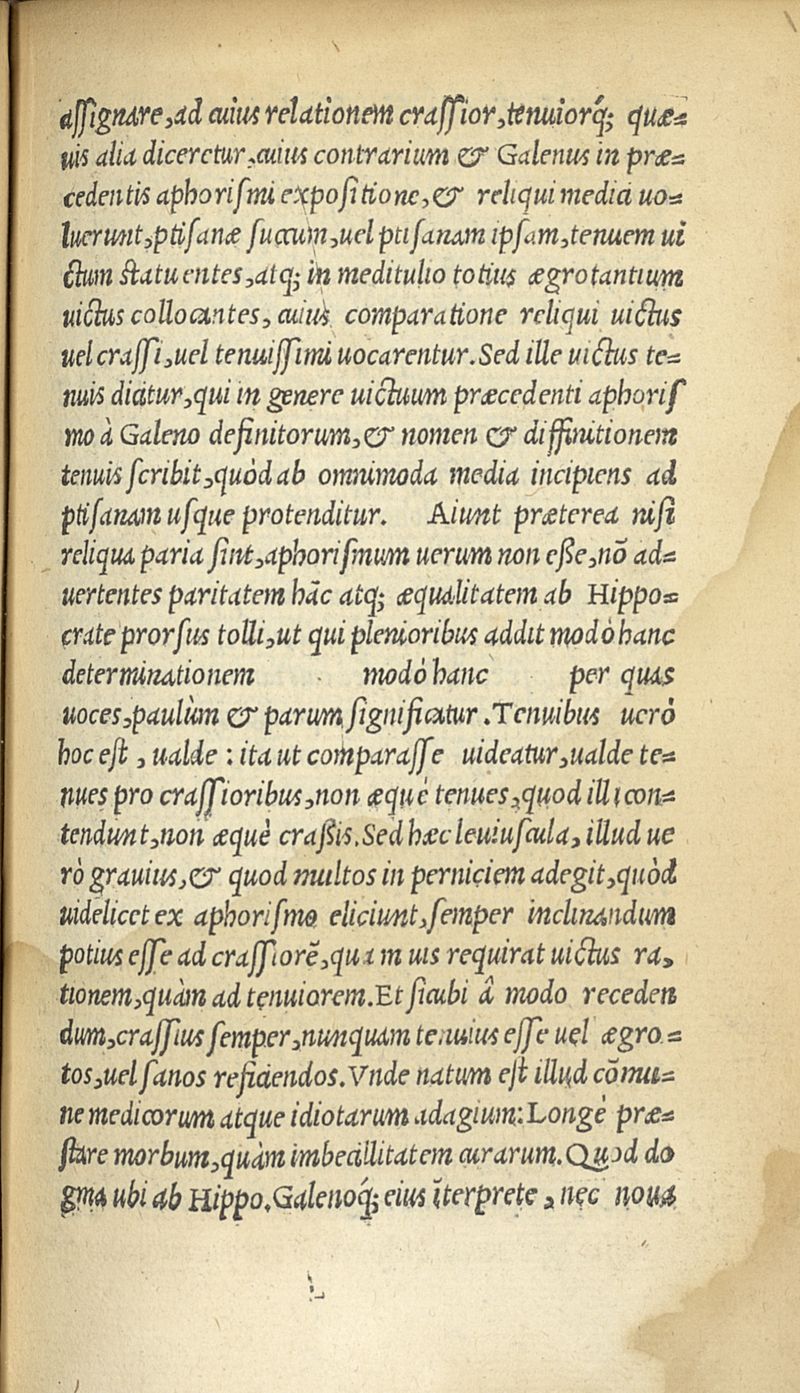 aſſignare,ad cuius relationem craſſior,tenuiorq́; quæ=
uis alia diceretur,cuius contrarium & Galenus in præ=
cedentis aphoriſmi expoſitione,& reliqui media uo=
luerunt,ptiſanæ ſuccum,uel ptiſanam ipſam,tenuem ui
ctum ſtatuentes,atq; in meditulio totius ægrotantium
uictus collocantes, cuius comparatione reliqui uictus
uel craſſi,uel tenuiſſimi uocarentur.Sed ille uictus te=
nuis dicitur,qui in genere uictuum præcedenti aphoriſ
mo à Galeno definitorum,& nomen & diffinitionem
tenuis ſcribit,quòd ab omnimoda media incipiens ad
ptiſanam uſque protenditur. Aiunt præterea niſi
reliqua paria ſint,aphoriſmum uerum non eſſe,nō ad=
uertentes paritatem hāc atq; æqualitatem ab Hippo=
crate prorſus tolli,ut qui plenioribus addit modò hanc
determinationem modò hanc per quas
uoces,paulùm & parum ſignificatur .Tenuibus uerò
hoc eſt , ualde : ita ut comparaſſe uideatur,ualde te=
nues pro craſſioribus,non æquè tenues,quod illi con=
tendunt,non æquè craſſis.Sed hæc leuiuſcula, illud ue
rò grauius,& quod multos in perniciem adegit,quòd
uidelicet ex aphoriſmo eliciunt,ſemper inclinandum
potius eſſe ad craſſiorē,quam uis requirat uictus ra,
tionem,quàm ad tenuiorem.Et ſicubi â modo receden
dum,craſſius ſemper,nunquam tenuius eſſe uel ægro=
tos,uel ſanos reficiendos.Vnde natum eſt illud cōmu=
ne medicorum atque idiotarum adagium:Longè præ=
ſtare morbum,quàm imbecillitatem curarum.Quod do
gma ubi ab Hippo.Galenoq́; eius īterprete , nec noua